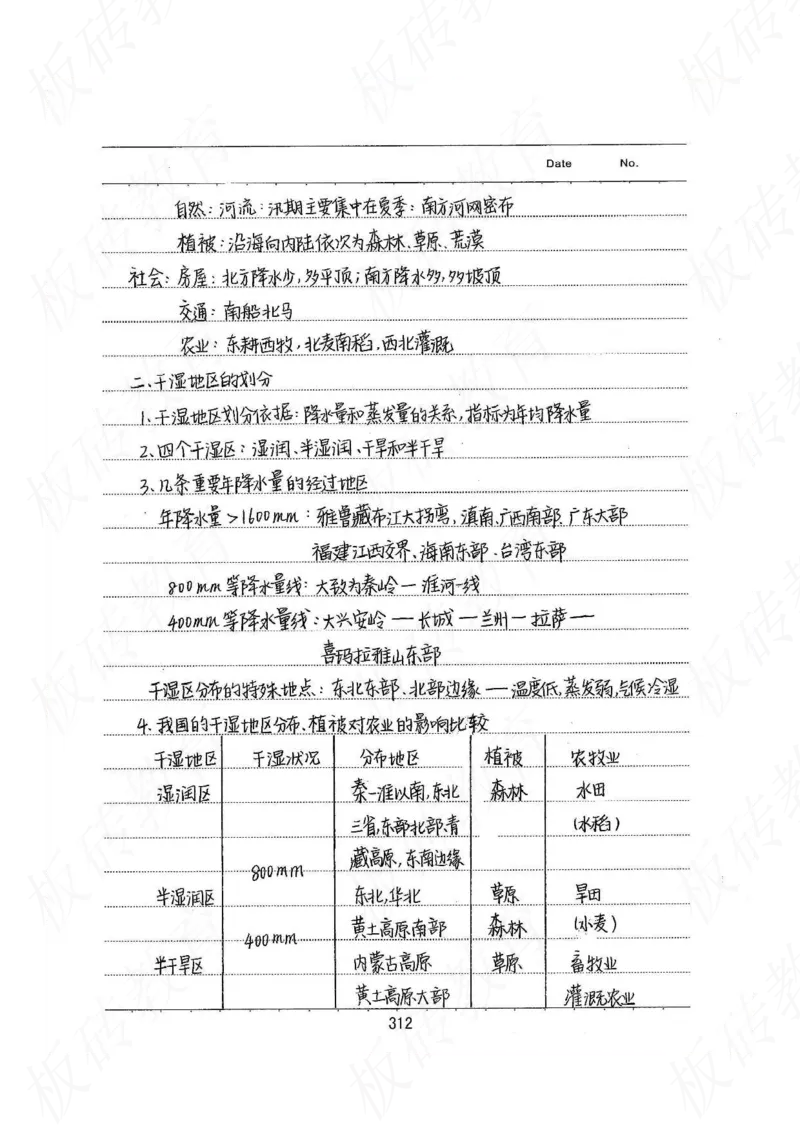 Date No.
自然：河流：汛期主要集中在夏季；南方河网密布
植被：沿海向内陆依次为森林、草原、荒漠
社会：房屋：北方降水少，多平顶；南方降水多，多坡顶
交通：南船北马
农业：东耕西牧，北麦南稻，西北灌溉
二、干湿地区的划分
1、干湿地区划分依据：降水量和蒸发量的关系，指标为年均降水量
2、四个干湿区：湿润、半湿润、干旱和半干旱
3、几条重要年降水量的经过地区
年降水量>1600mm：雅鲁藏布江大拐弯，滇南，广西南部，广东大部
福建江西交界、海南东部、台湾东部
800mm等降水量线：大致为秦岭一淮河一线
400mm等降水量线：大兴安岭一长城一兰州一拉萨一
喜玛拉雅山东部
干湿区分布的特殊地点：东北东部、北部边缘——温度低，蒸发弱，气候冷湿
4、我国的干湿地区分布、植被对农业的影响比较
干湿地区 干湿状况 分布地区 植被 农牧业
湿润区 秦一淮以南，东北 森林 水田
三省，东部北部，青 （水稻）
藏高原，东南边缘
800mm
半湿润区 东北，华北 草原 旱田
黄土高原南部 森林 （小麦）
400mm
半干旱区 内蒙古高原 草原 畜牧业
黄土高原大部 灌溉农业
312
板砖教育